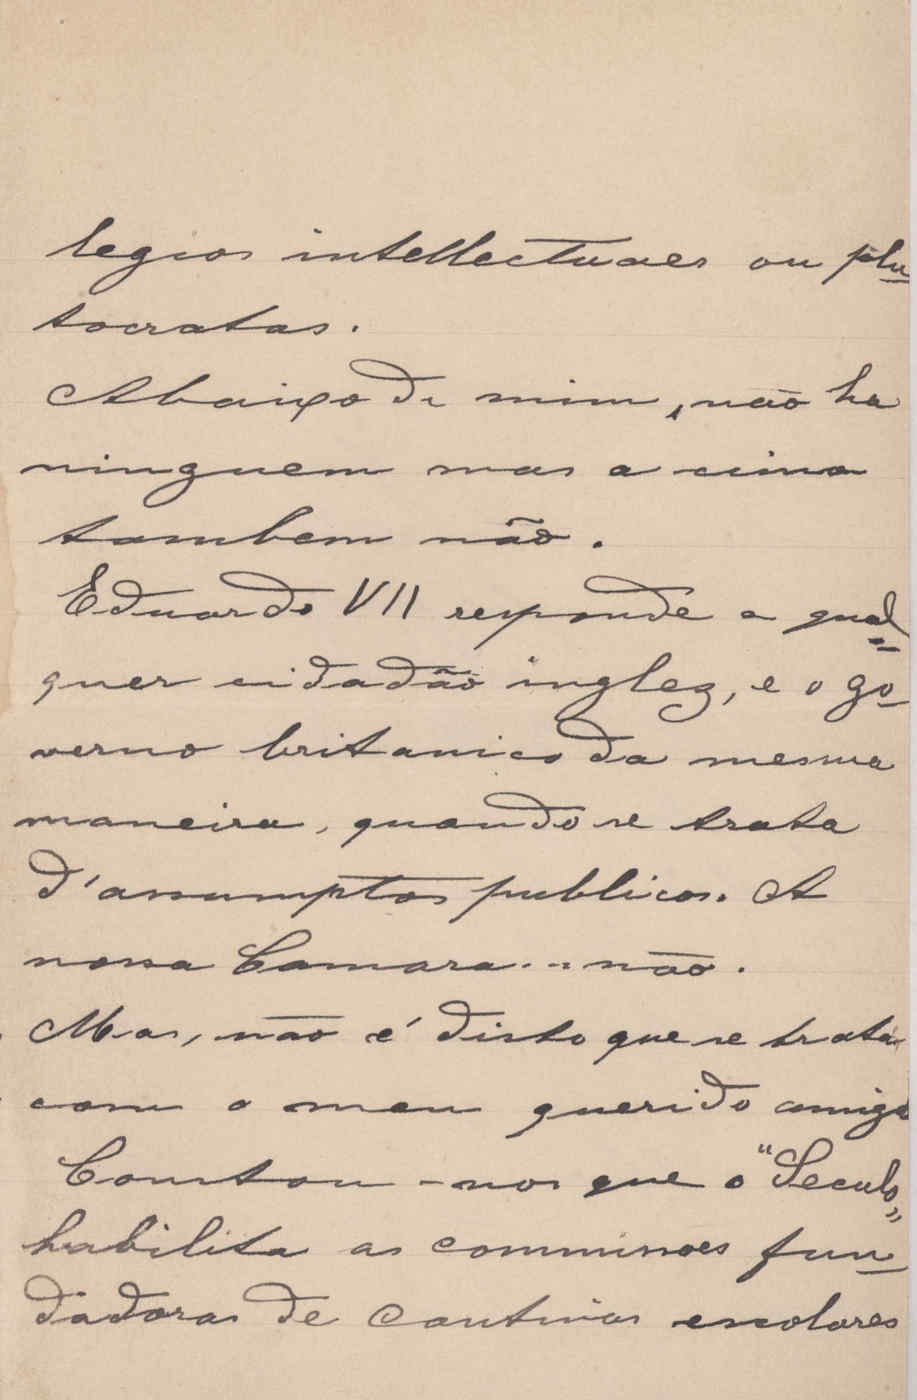 legios intellectuaes ou plu-
tocratas.
Abaixo de mim, não ha
ninguem mas a cima
tambem não.
Eduardo VII responde a qual=
quer cidadão inglez, e o go-
verno britanico da mesma
maneira, quando se trata
d'assumptos publicos. A
nossa Camara... não.
Mas, não é disto que se trata
com o meu querido amigo
Constou-nos que o "Seculo"
habilita as commissoes fun-
dadoras de Cantinas escolares